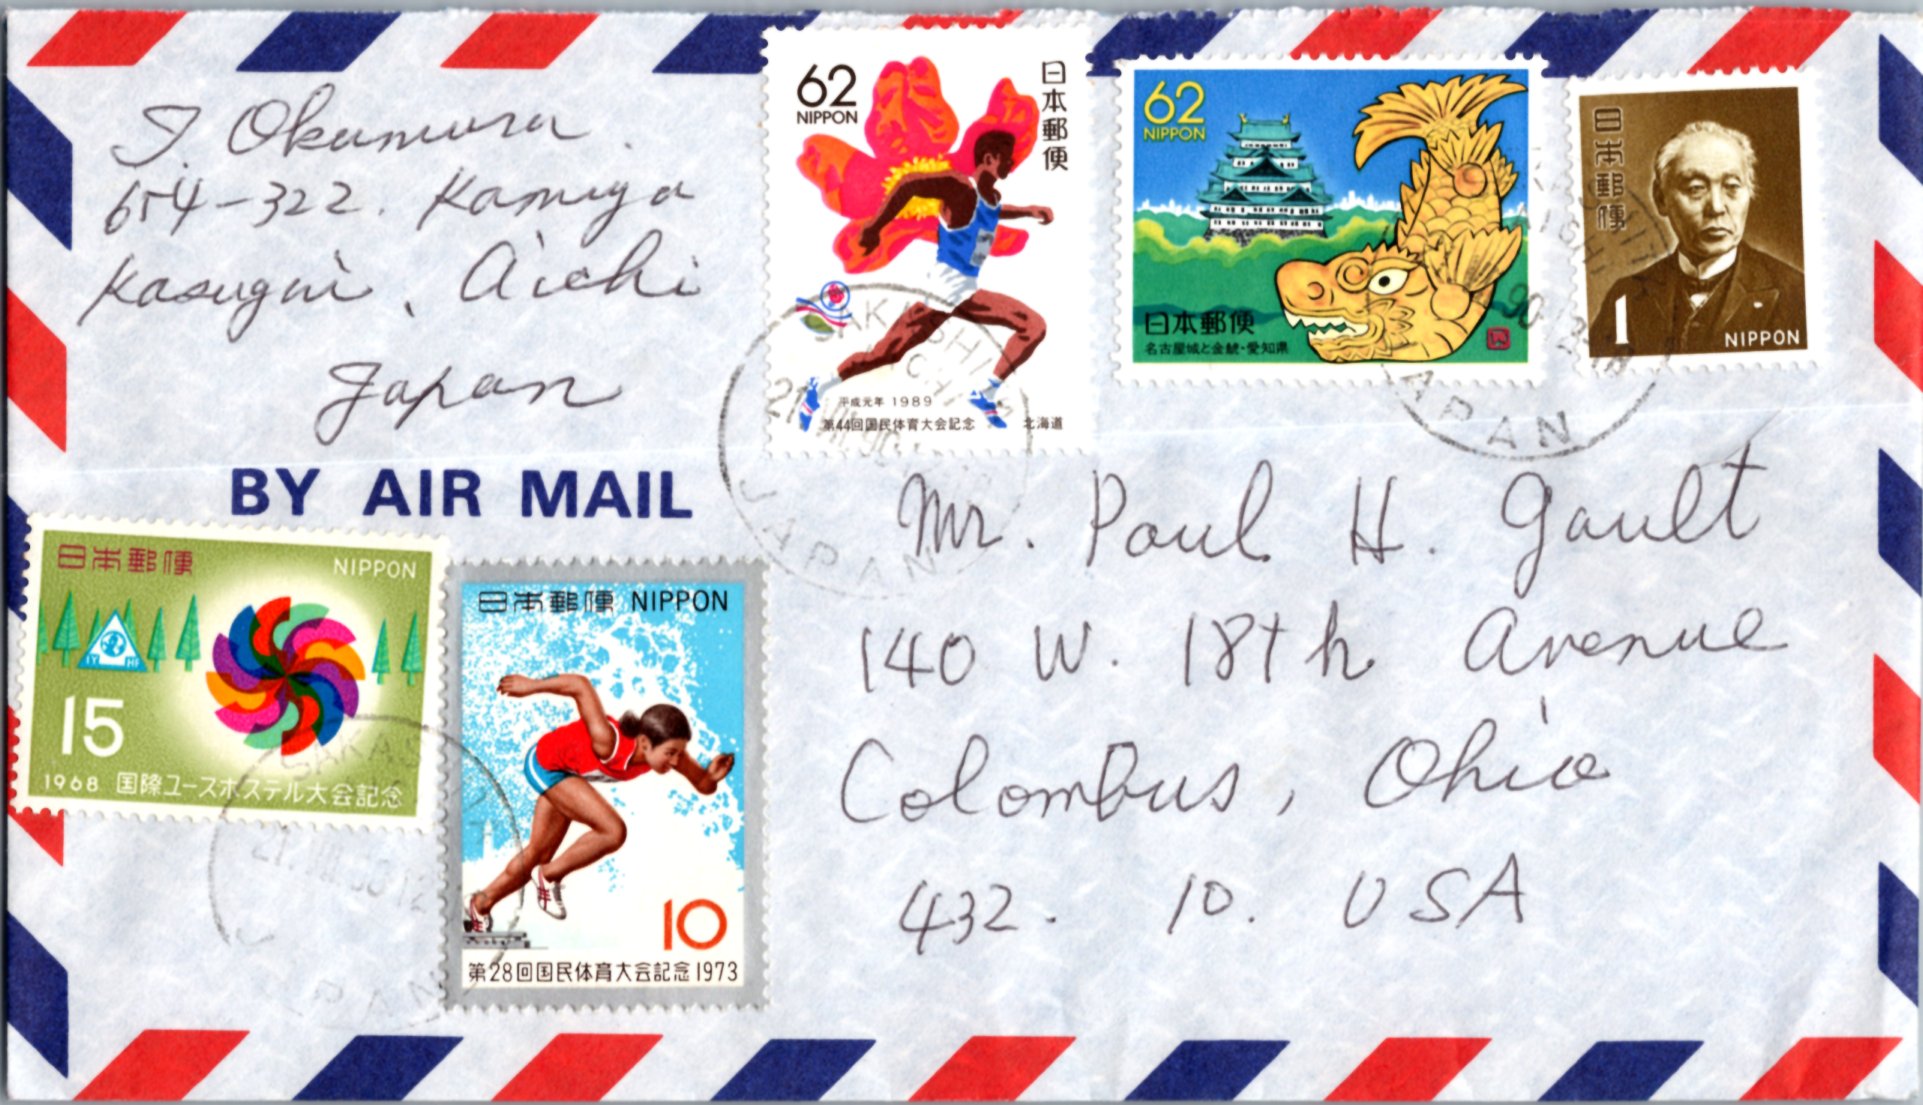 T. Okumura.
654-322. Kamiya
Kasugai, Aichi
Japan
BY AIR MAIL
62
NIPPON
日本郵便
平成元年 1989
第44回国民体育大会記念 北海道
62
NIPPON
日本郵便
名古屋城と金鯱・愛知県
日本郵便
1
NIPPON
日本郵便 NIPPON
IYHF
15
1968 国際ユースホステル大会記念
日本郵便 NIPPON
10
第28回国民体育大会記念1973
JAPAN
JAPAN
JAPAN
Mr. Paul H. Gault
140 W. 18th Avenue
Colombus, Ohio
432. 10. USA